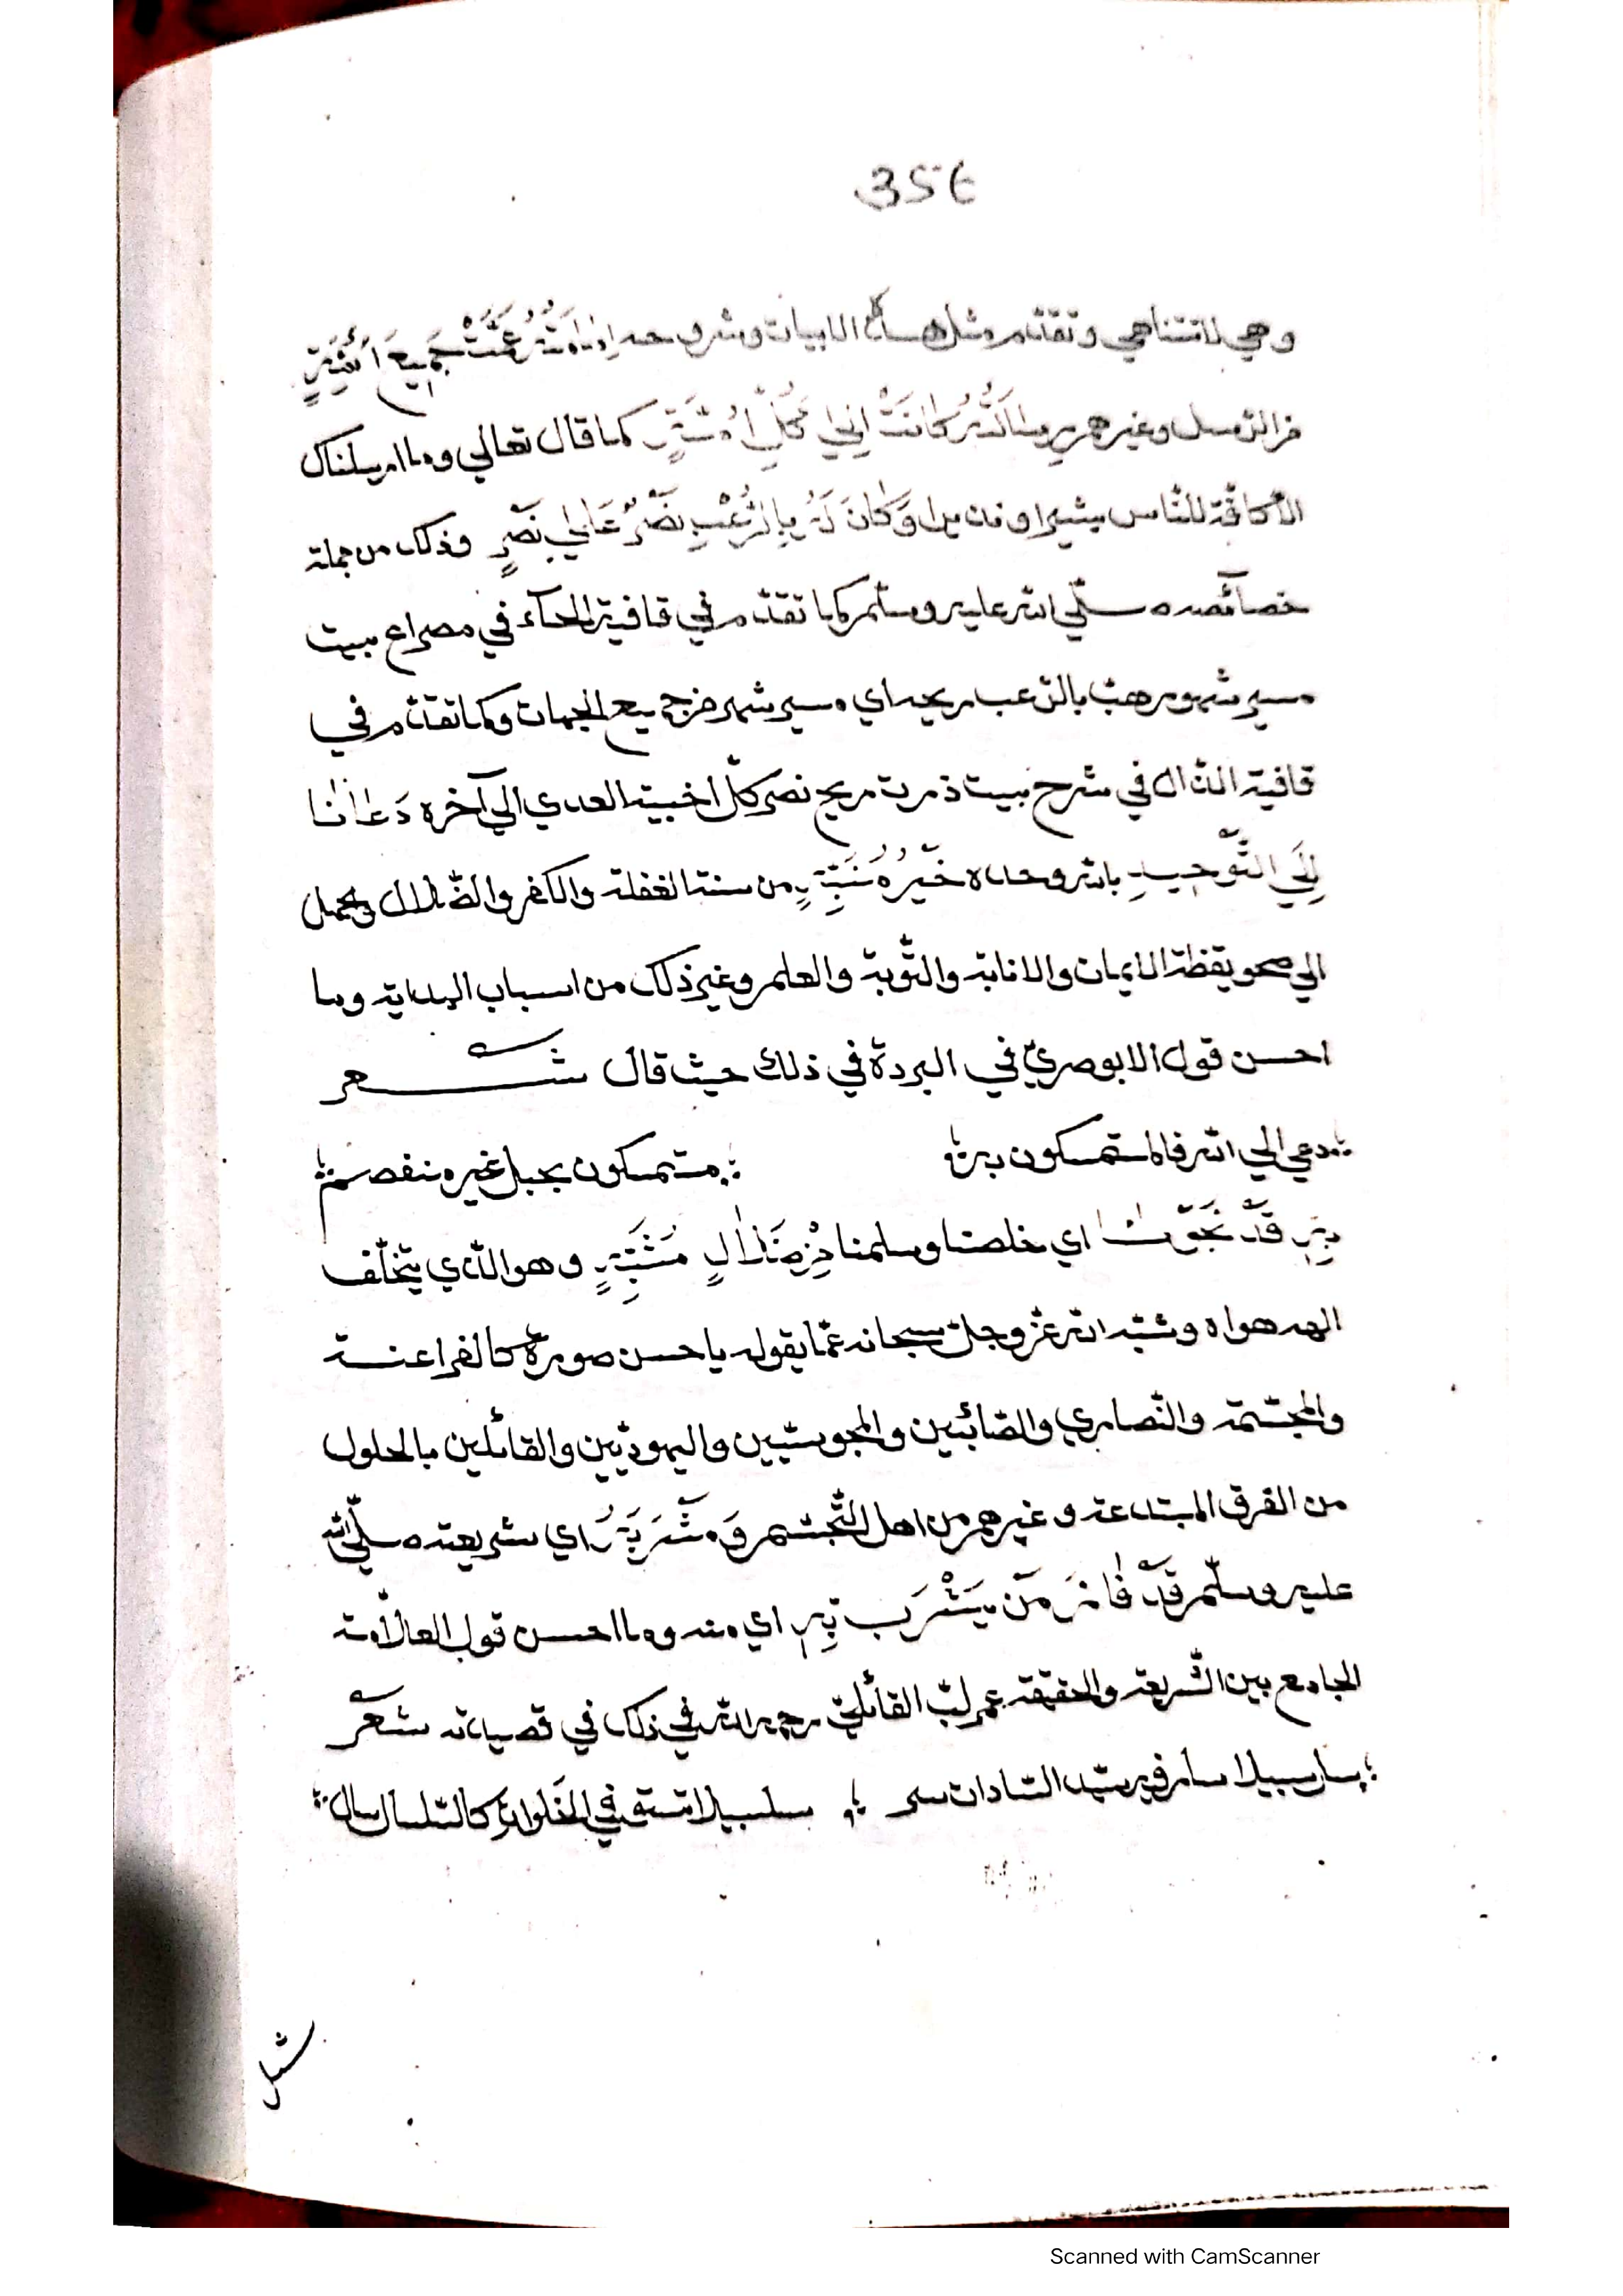 356
وهي لا تتناهي وتقدّم مثل هذا الابيات وشرو حه امامته عمّت جميع ائمّة
من الرّسل وغيرهم رسالته كانت الي كلّ امّة كما قال تعالي وما ارسلناك
الاّ كافّة للنّاس بشيرا ونذيرا وكان له بالرّعب نصر علي نصر وذلك من جملة
خصآئصه صلّي الله عليه وسلّم كما تقدّم في قافية الحآء في مصراع بيت
مسير شهور هبّ بالرّعب ريحه اي مسير شهر من جميع الجهات وكما تقدّم في
قافية الذال في شرح بيت ذرت ريح نصر كلّ اخبية العدي الي آخره دَعانا
إلَي التّوحيدِ بالله وحده خَيْرُ مُنَبِّهٍ من سنة الغفلة والكفر والضّلال والجهل
الي صحو يقظة الايمان والانابة والتّوبة والعلم وغير ذلك من اسباب الهداية وما
احسن قول الابوصريّ في البردة في ذلك حيث قال شعر
دعي الي الله فالمستمسكون به مستمسكون بحبل غير منفصم
بِهِ قَدْ نَجَوْنا اي خلصنا وسلمنا مِنْ ضَلالِ مُشَبِّهٍ وهو الّذي يتخّلف
الهه هواه وشبّه الله عزّ وجلّ سبحانه عمّا يقوله باحسن صورة كالفراعنة
والمجسّمة والنّصاري والصّابئين والمجوسيّين واليهوديّين والقائلين بالحلول
من الفرق المبتدعة وغيرهم من اهل التّجسّم وَمَشْرَبُهُ اي شريعته صلّي الله
عليه وسلّم قَدْ فازَ مَنْ يَشْرَب بِهِ اي منه وما احسن قول العلاّمة
الجامع بين الشّريعة والحقيقة عمر لبّ القائليّ رحمه الله في ذلك في قصيدته شعر
سلسبيلا تستقي في الخلوات كالسّلسال سال